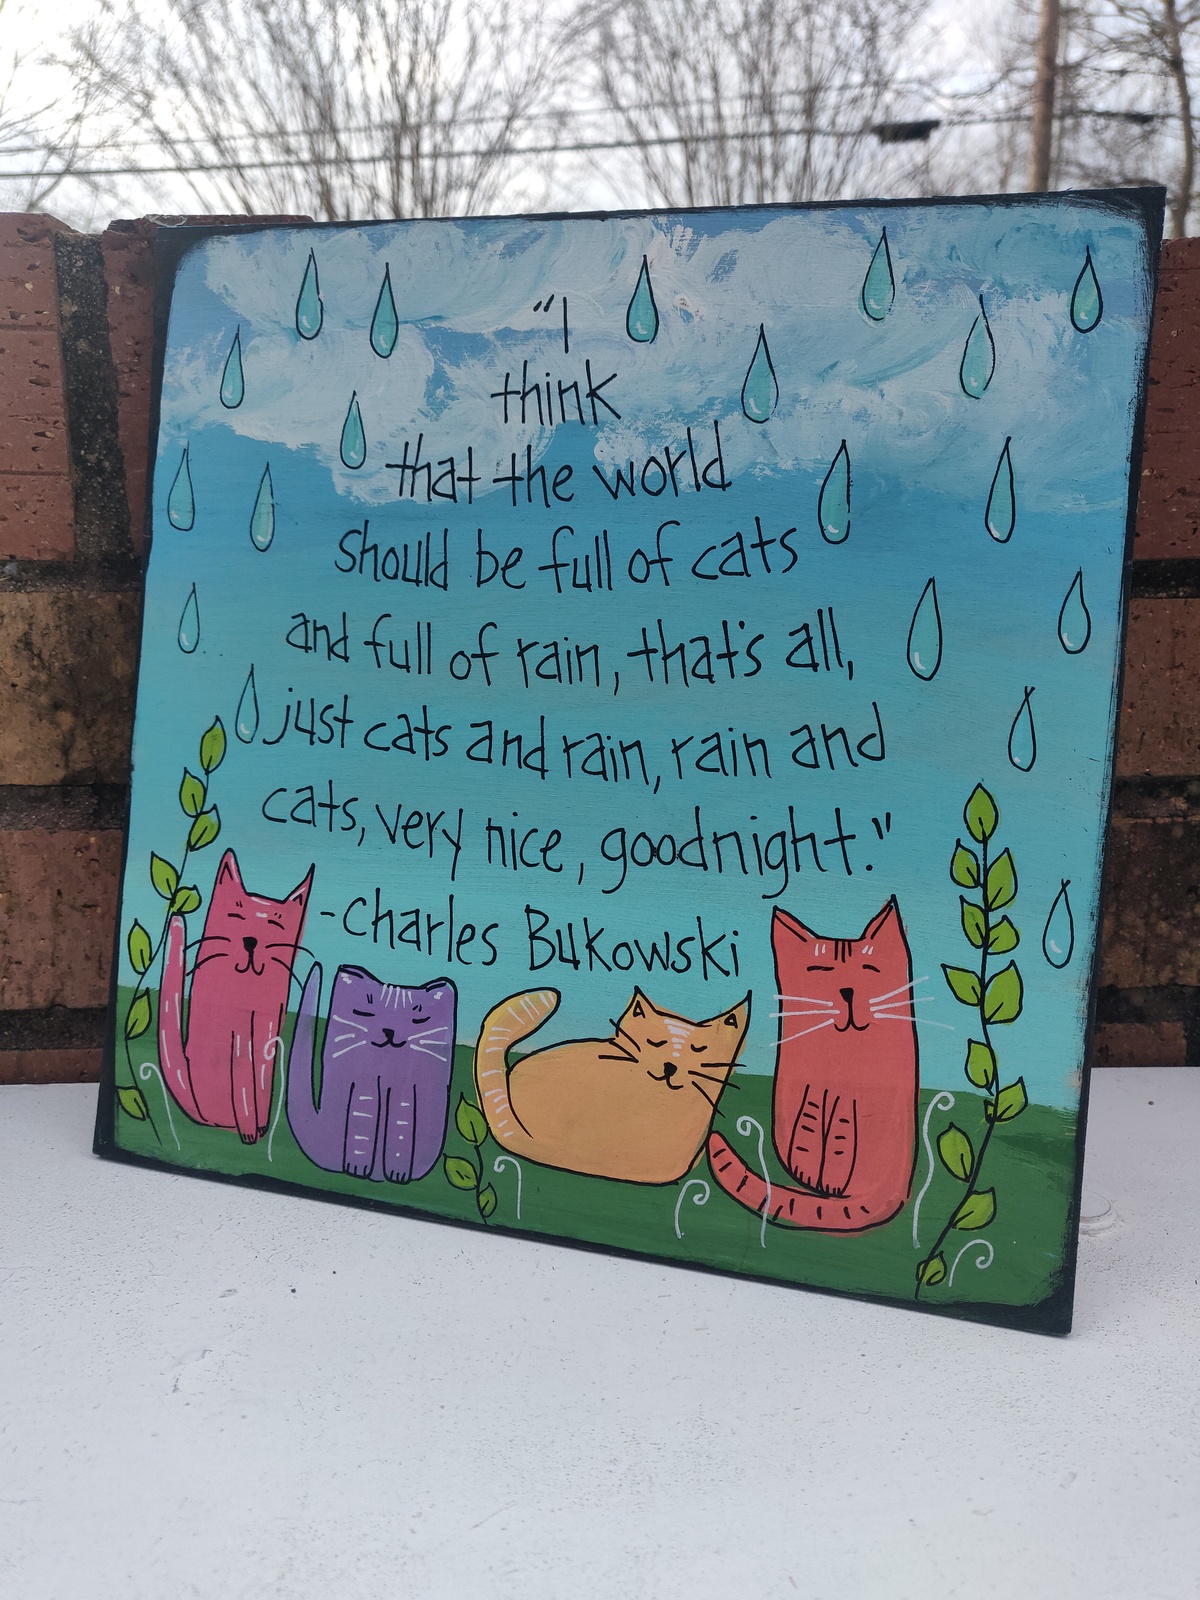 "I
think
that the world
should be full of cats
and full of rain, that's all,
just cats and rain, rain and
cats, very nice, goodnight."
-Charles Bukowski